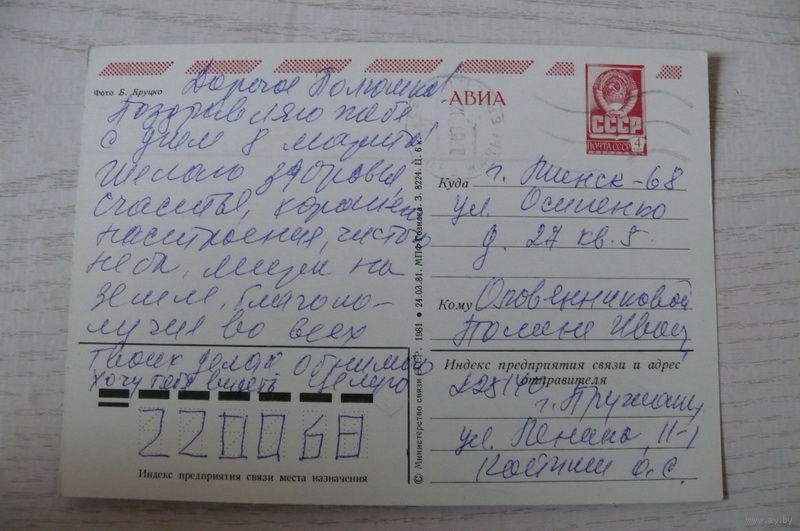 Фото Б. Круцко
Дорогая Полюшка!
Поздравляю тебя
с днем 8 марта!
Желаю здоровья,
счастья, хорошего
настроения, чистого
неба, мира на
земле, благопо-
лучия во всех
твоих делах. Обнимаю
Хочу тебя видеть Целую
220068
Индекс предприятия связи места назначения
© Министерство связи СССР. 1981 • 24.03.81. МПФ Гознака. З. 8224. Ц. 6 к.
АВИА
СССР
ПОЧТА СССР 4
Куда г. Минск-68
ул. Осипенко
д. 27 кв. 5.
Кому
Полине Иван.
Индекс предприятия связи и адрес
отправителя
225140
г. Пружаны
ул. 11-1
О. С.
www.ay.by